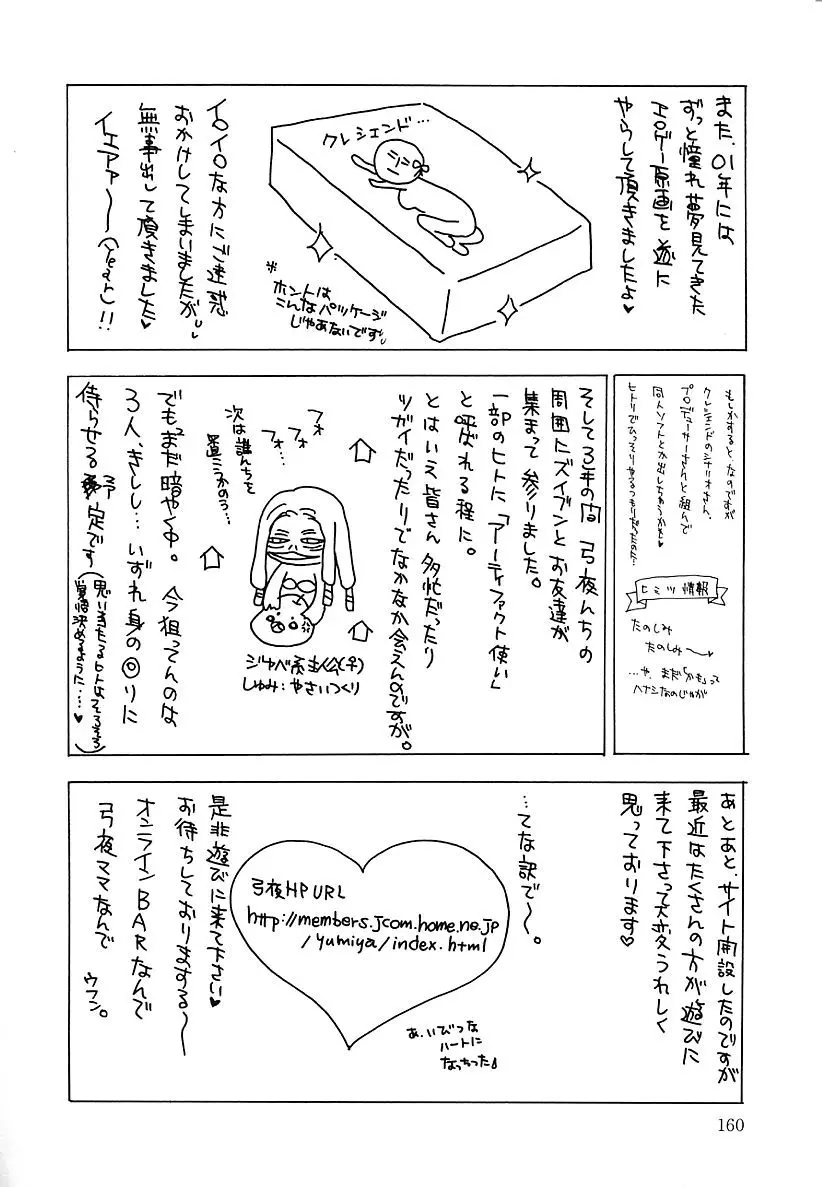 また、01年には
ずっと憧れ夢見てきた
エロゲー原画を遂に
やらして頂きましたよ♥
クレシェンド…
※ホントは
こんなパッケージ
じゃあないです
イロイロな方にご迷惑
おかけしてしまいましたが
無事出して頂きました♥
イエアァ〜(Yeah)!!
もしかすると、なのですが
クレシェンドのシナリオさん、
プロデューサーさんと組んで
同人ソフトとか出しちゃうかも♥
ヒトリでひっそりやるつもりだったのだ…
ヒミツ情報
たのしみ
たのしみ〜♥
…や、まだ「かも」って
ハナシなのじゃが
そして3年の間 弓夜んちの
周囲にズイブンとお友達が
集まって参りました。
一部のヒトに「アーティファクト使い」
と呼ばれる程に。
とはいえ皆さん多忙だったり
ツガイだったりでなかなか会えんのですが。
フォ
フォ…
フォ…
次は誰んちを
置こうかのう…
ジャベ系主人公(♀)
しゅみ:やさいつくり
でもまだ暗やく中。今狙ってんのは
3人、きしし…いずれ身の回りに
待らせる予定です(思い当たるヒトはそろそろ
覚悟決めるように…♥)
あとあと、サイト開設したのですが
最近はたくさんの方が遊びに
来て下さって大変うれしく
思っております♥
…てな訳で〜。
弓夜HP URL
http://members.jcom.home.ne.jp
/yumiya/index.html
あ、いびつな
ハートに
なっちった♪
是非遊びに来て下さい♥
お待ちしておりまする〜
オンラインBARなんで
弓夜ママなんで
ウフン。
160